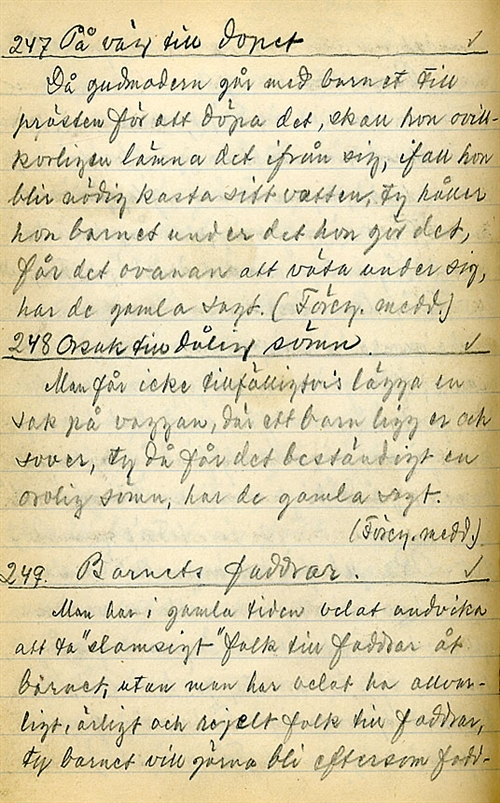 247 På väg till dopet
Då gudmodern går med barnet till
prästen för att döpa det, skall hon ovill-
korligen lämna det ifrån sig, ifall hon
blir nödig kasta sitt vatten, ty håller
hon barnet under det hon gör det,
får det ovanan att väta under sig,
har de gamla sagt. (Föreg. medd.)
248 Orsak till dålig sömn.
Man får icke tillfälligtvis lägga en
sak på vaggan, där ett barn ligger och
sover, ty då får det beständigt en
orolig sömn, har de gamla sagt.
(Föreg. medd.)
249. Barnets faddrar.
Man har i gamla tiden velat undvika
att ta "slamsigt" folk till faddrar åt
barnet, utan man har velat ha allvar-
ligt, ärligt och folk till faddrar,
ty barnet vill gärna bli eftersom fadd-